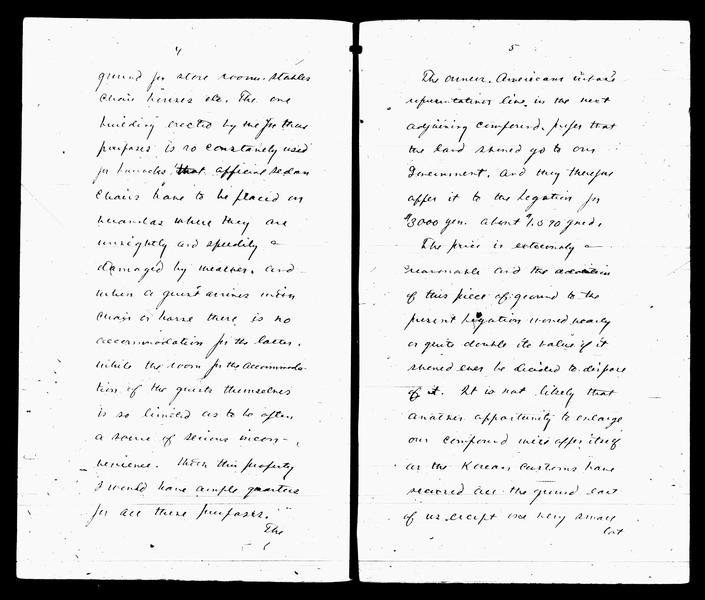 4
ground for store rooms, stables
chair houses etc. The one
building erected by me for these
purposes is so constantly used
for that official sedan
chairs have to be placed on
verandas where they are
unsightly and speedily
damaged by weather, and
when a guest arrives with
chair or horse there is no
accommodation for the latter.
While the room for the accommoda-
tion of the guests themselves
is so limited as to be often
a source of serious incon-
venience. With this property
I would have ample quarters
for all these purposes.
The
5
The owner, Americans whose
representatives live in the next
adjoining compound, prefer that
the land should go to our
Government, and they therefore
offer it to the Legation for
$3000 yen. about $1.590 gold.
The price is extremely
reasonable and the addition
of this piece of ground to the
present Legation would nearly
or quite double its value if it
should ever be decided to dispose
of it. It is not likely that
another opportunity to enlarge
our compound will offer itself
as the Korean Customs have
secured all the ground east
of us except one very small
lot